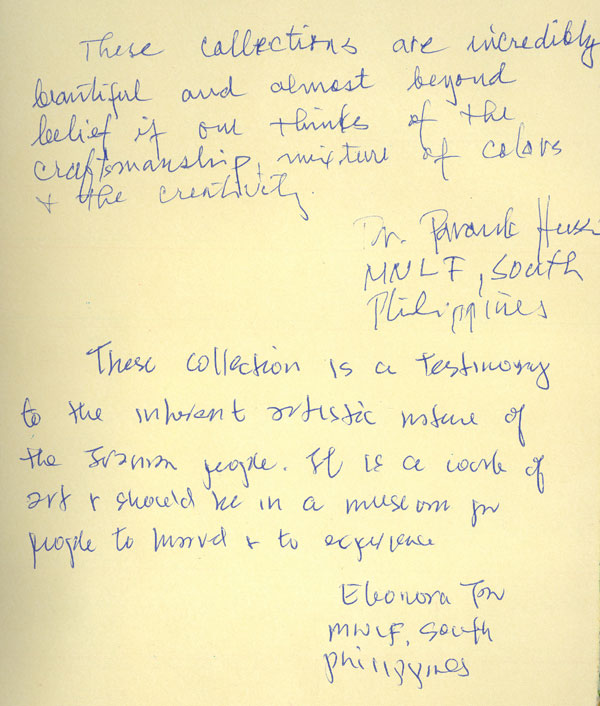 These collections are incredibly
beautiful and almost beyond
belief if one thinks of the
craftsmanship, mixture of colors
+ the creativity.
Dr. Parouk Hussi
MNLF, South
Philippines
These collection is a testimony
to the inherent artistic nature of
the Iranian people. It is a work of
art & should be in a museum for
people to marvel & to experience
Eleonora Tan
MNLF, South
Philippines